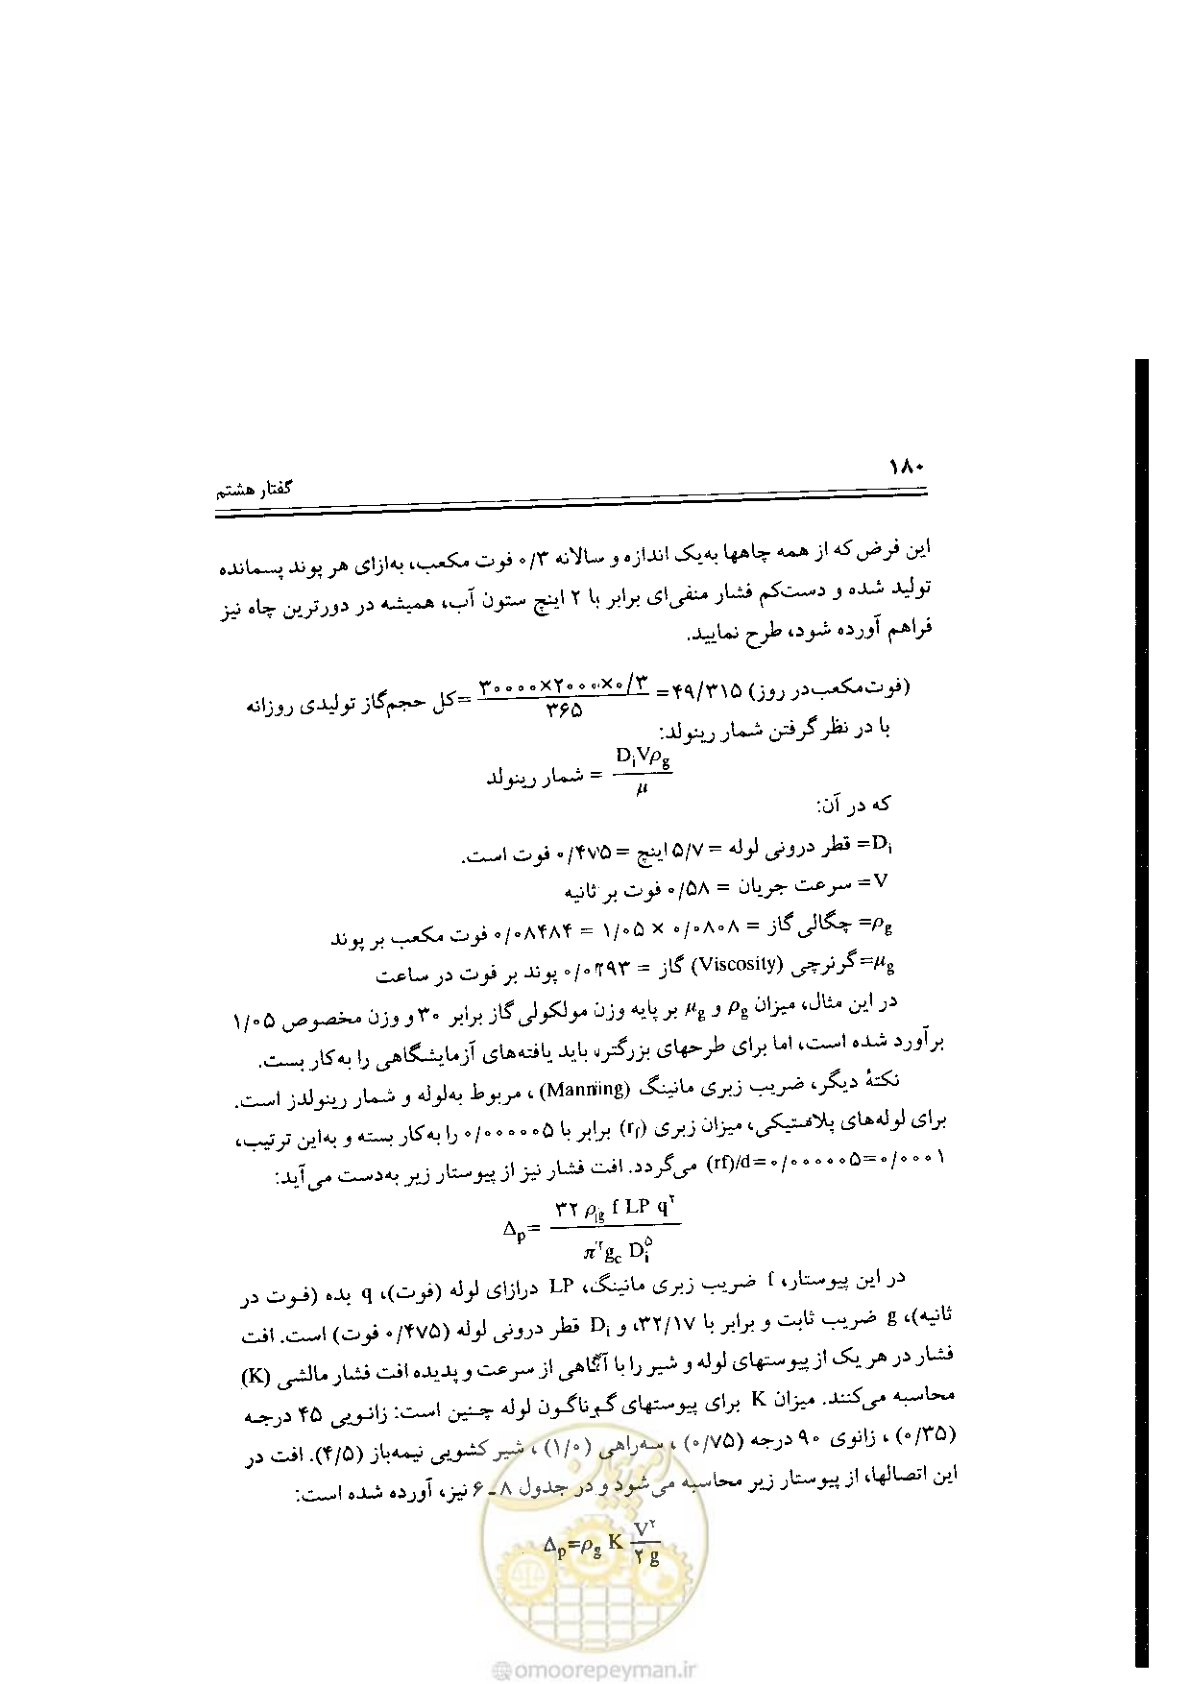 ۱۸۰
گفتار هشتم
این فرض که از همه چاهها به‌یک اندازه و سالانه ۰/۳ فوت مکعب، به‌ازای هر پوند پسمانده
تولید شده و دست‌کم فشار منفی‌ای برابر با ۲ اینچ ستون آب، همیشه در دورترین چاه نیز
فراهم آورده شود، طرح نمایید.
(فوت‌مکعب‌در روز) ۴۹/۳۱۵ = ۳۰۰۰۰×۲۰۰۰×۰/۳ / ۳۶۵ =کل حجم‌گاز تولیدی روزانه
با در نظر گرفتن شمار رینولد:
شمار رینولد = DᵢVρg / μ
که در آن:
Dᵢ= قطر درونی لوله = ۵/۷ اینچ = ۰/۴۷۵ فوت است.
V= سرعت جریان = ۰/۵۸ فوت بر ثانیه
ρg= چگالی گاز = ۰/۰۸۰۸ × ۱/۰۵ = ۰/۰۸۴۸۴ فوت مکعب بر پوند
μg=گرنرچی (Viscosity) گاز = ۰/۰۲۹۳ پوند بر فوت در ساعت
در این مثال، میزان ρg و μg بر پایه وزن مولکولی گاز برابر ۳۰ و وزن مخصوص ۱/۰۵
برآورد شده است، اما برای طرحهای بزرگتر، باید یافته‌های آزمایشگاهی را به‌کار بست.
نکتهٔ دیگر، ضریب زبری مانینگ (Manning) ، مربوط به‌لوله و شمار رینولدز است.
برای لوله‌های پلاستیکی، میزان زبری (rf) برابر با ۰/۰۰۰۰۰۵ را به‌کار بسته و به‌این ترتیب،
۰/۰۰۰۱=۰/۰۰۰۰۰۵=rf)/d) می‌گردد. افت فشار نیز از پیوستار زیر به‌دست می‌آید:
Δp= ۳۲ ρg f LP q² / π²gc Dᵢ⁵
در این پیوستار، f ضریب زبری مانینگ، LP درازای لوله (فوت)، q بده (فوت در
ثانیه)، g ضریب ثابت و برابر با ۳۲/۱۷، و Dᵢ قطر درونی لوله (۰/۴۷۵ فوت) است. افت
فشار در هر یک از پیوستهای لوله و شیر را با آگاهی از سرعت و پدیده افت فشار مالشی (K)
محاسبه می‌کنند. میزان K برای پیوستهای گوناگون لوله چنین است: زانویی ۴۵ درجه
(۰/۳۵) ، زانوی ۹۰ درجه (۰/۷۵) ، سه‌راهی (۱/۰) ، شیر کشویی نیمه‌باز (۴/۵). افت در
این اتصالها، از پیوستار زیر محاسبه می‌شود و در جدول ۸ـ۶ نیز، آورده شده است:
Δp=ρg K V² / ۲ g
امور پیمان
@omoorepeyman.ir